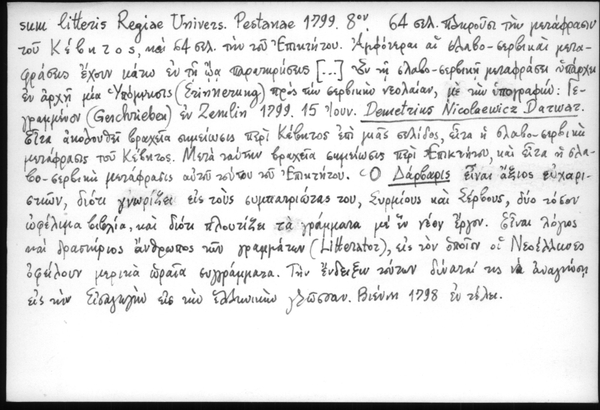 sum litteris Regiae Univers. Pestanae 1799. 8ον. 64 σελ. πληροῦσι τὴν μετάφρασιν
τοῦ Κέβητος, καὶ 64 σελ. τὴν τοῦ Ἐπικτήτου. Ἀμφότεραι αἱ σλαβο-σερβικαὶ μετα-
φράσεις ἔχουν κάτω ἐν τῇ ὤᾳ παρατηρήσεις [...] Ἐν τῇ σλαβο-σερβικῇ μεταφράσει ὑπάρχει
ἐν ἀρχῇ μία Ὑπόμνησις (Erinnerung) πρὸς τὴν σερβικὴν νεολαίαν, μὲ τὴν ὑπογραφὴν: Γε-
γραμμένον (Geschrieben) ἐν Zemlin 1799. 15 Ἰουν. Demetrius Nicolaewicz Darwar.
Εἶτα ἀκολουθεῖ βραχεῖα σημείωσις περὶ Κέβητος ἐπὶ μιᾶς σελίδος, εἶτα ἡ σλαβο-σερβικὴ
μετάφρασις τοῦ Κέβητος. Μετὰ ταύτην βραχεῖα σημείωσις περὶ Ἐπικτήτου, καὶ εἶτα ἡ σλα-
βο-σερβικὴ μετάφρασις αὐτοῦ τούτου τοῦ Ἐπικτήτου. Ὁ Δάρβαρις εἶναι ἄξιος εὐχαρι-
στιῶν, διότι γνωρίζει εἰς τοὺς συμπατριώτας του, Συρμίους καὶ Σέρβους, δύο τόσον
ὠφέλιμα βιβλία, καὶ διότι πλουτίζει τὰ γράμματα μὲ ἓν νέον ἔργον. Εἶναι λόγιος
καὶ δραστήριος ἄνθρωπος τῶν γραμμάτων (Litterator), εἰς τὸν ὁποῖον οἱ Νεοέλληνες
ὀφείλουν μερικὰ ὡραῖα συγγράμματα. Τὴν ἔνδειξιν τούτων δύναταί τις νὰ ἀναγνώσῃ
εἰς τὴν Εἰσαγωγὴν εἰς τὴν ἑλληνικὴν γλῶσσαν. Βιέννη 1798 ἐν τέλει.